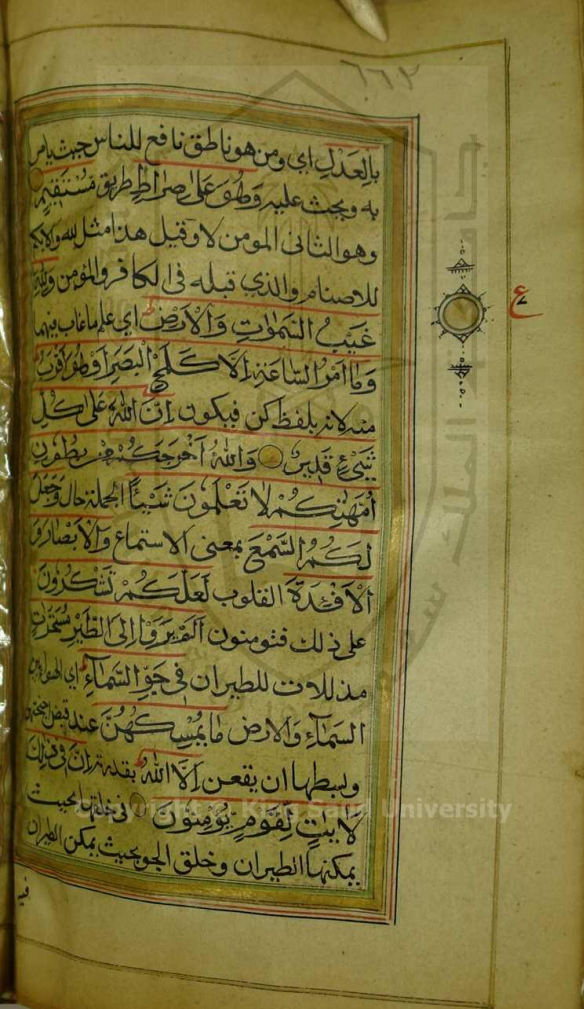 ٦٦٢
بالعدل اي ومن هو ناطق نافع للناس حيث يامر
به ويحث عليه وَهُوَ عَلى صِرَاطٍ طريق مُسْتَقِيمٍ
وهو الثاني المومن لا وقيل هذا مثل لله والابكم
للاصنام والذي قبله في الكافر والمؤمن وَلِلّهِ
غَيْبُ السَّمٰوٰتِ وَالْاَرْضِ اي علم ما غاب فيهما
وَمَا اَمْرُ السَّاعَةِ اِلَّا كَلَمْحِ الْبَصَرِ اَوْ هُوَ اَقْرَبُ
منه لانه بلفظ كن فيكون اِنَّ اللّٰهَ عَلٰى كُلِّ
شَيْءٍ قَدِيْرٌ وَاللّٰهُ اَخْرَجَكُمْ مِنْ بُطُوْنِ
اُمَّهٰتِكُمْ لَا تَعْلَمُوْنَ شَيْئًا الجملة حال وَجَعَلَ
لَكُمُ السَّمْعَ بمعنى الاستماع وَالْاَبْصَارَ وَ
الْاَفْئِدَةَ القلوب لَعَلَّكُمْ تَشْكُرُوْنَ
على ذلك فتومنون اَلَمْ يَرَوْا اِلَى الطَّيْرِ مُسَخَّرٰتٍ
مذللات للطيران فِيْ جَوِّ السَّمَآءِ اي الهواء بين
السماء والارض مَا يُمْسِكُهُنَّ عند قبض اجنحتهن
وبسطها ان يقعن اِلَّا اللّٰهُ بقدرته اِنَّ فِيْ ذٰلِكَ
لَاٰيٰتٍ لِّقَوْمٍ يُّؤْمِنُوْنَ في خلقها بحيث
يمكنها الطيران وخلق الجو بحيث يمكن الطيران
فيه
ع
Copyright © King Saud University